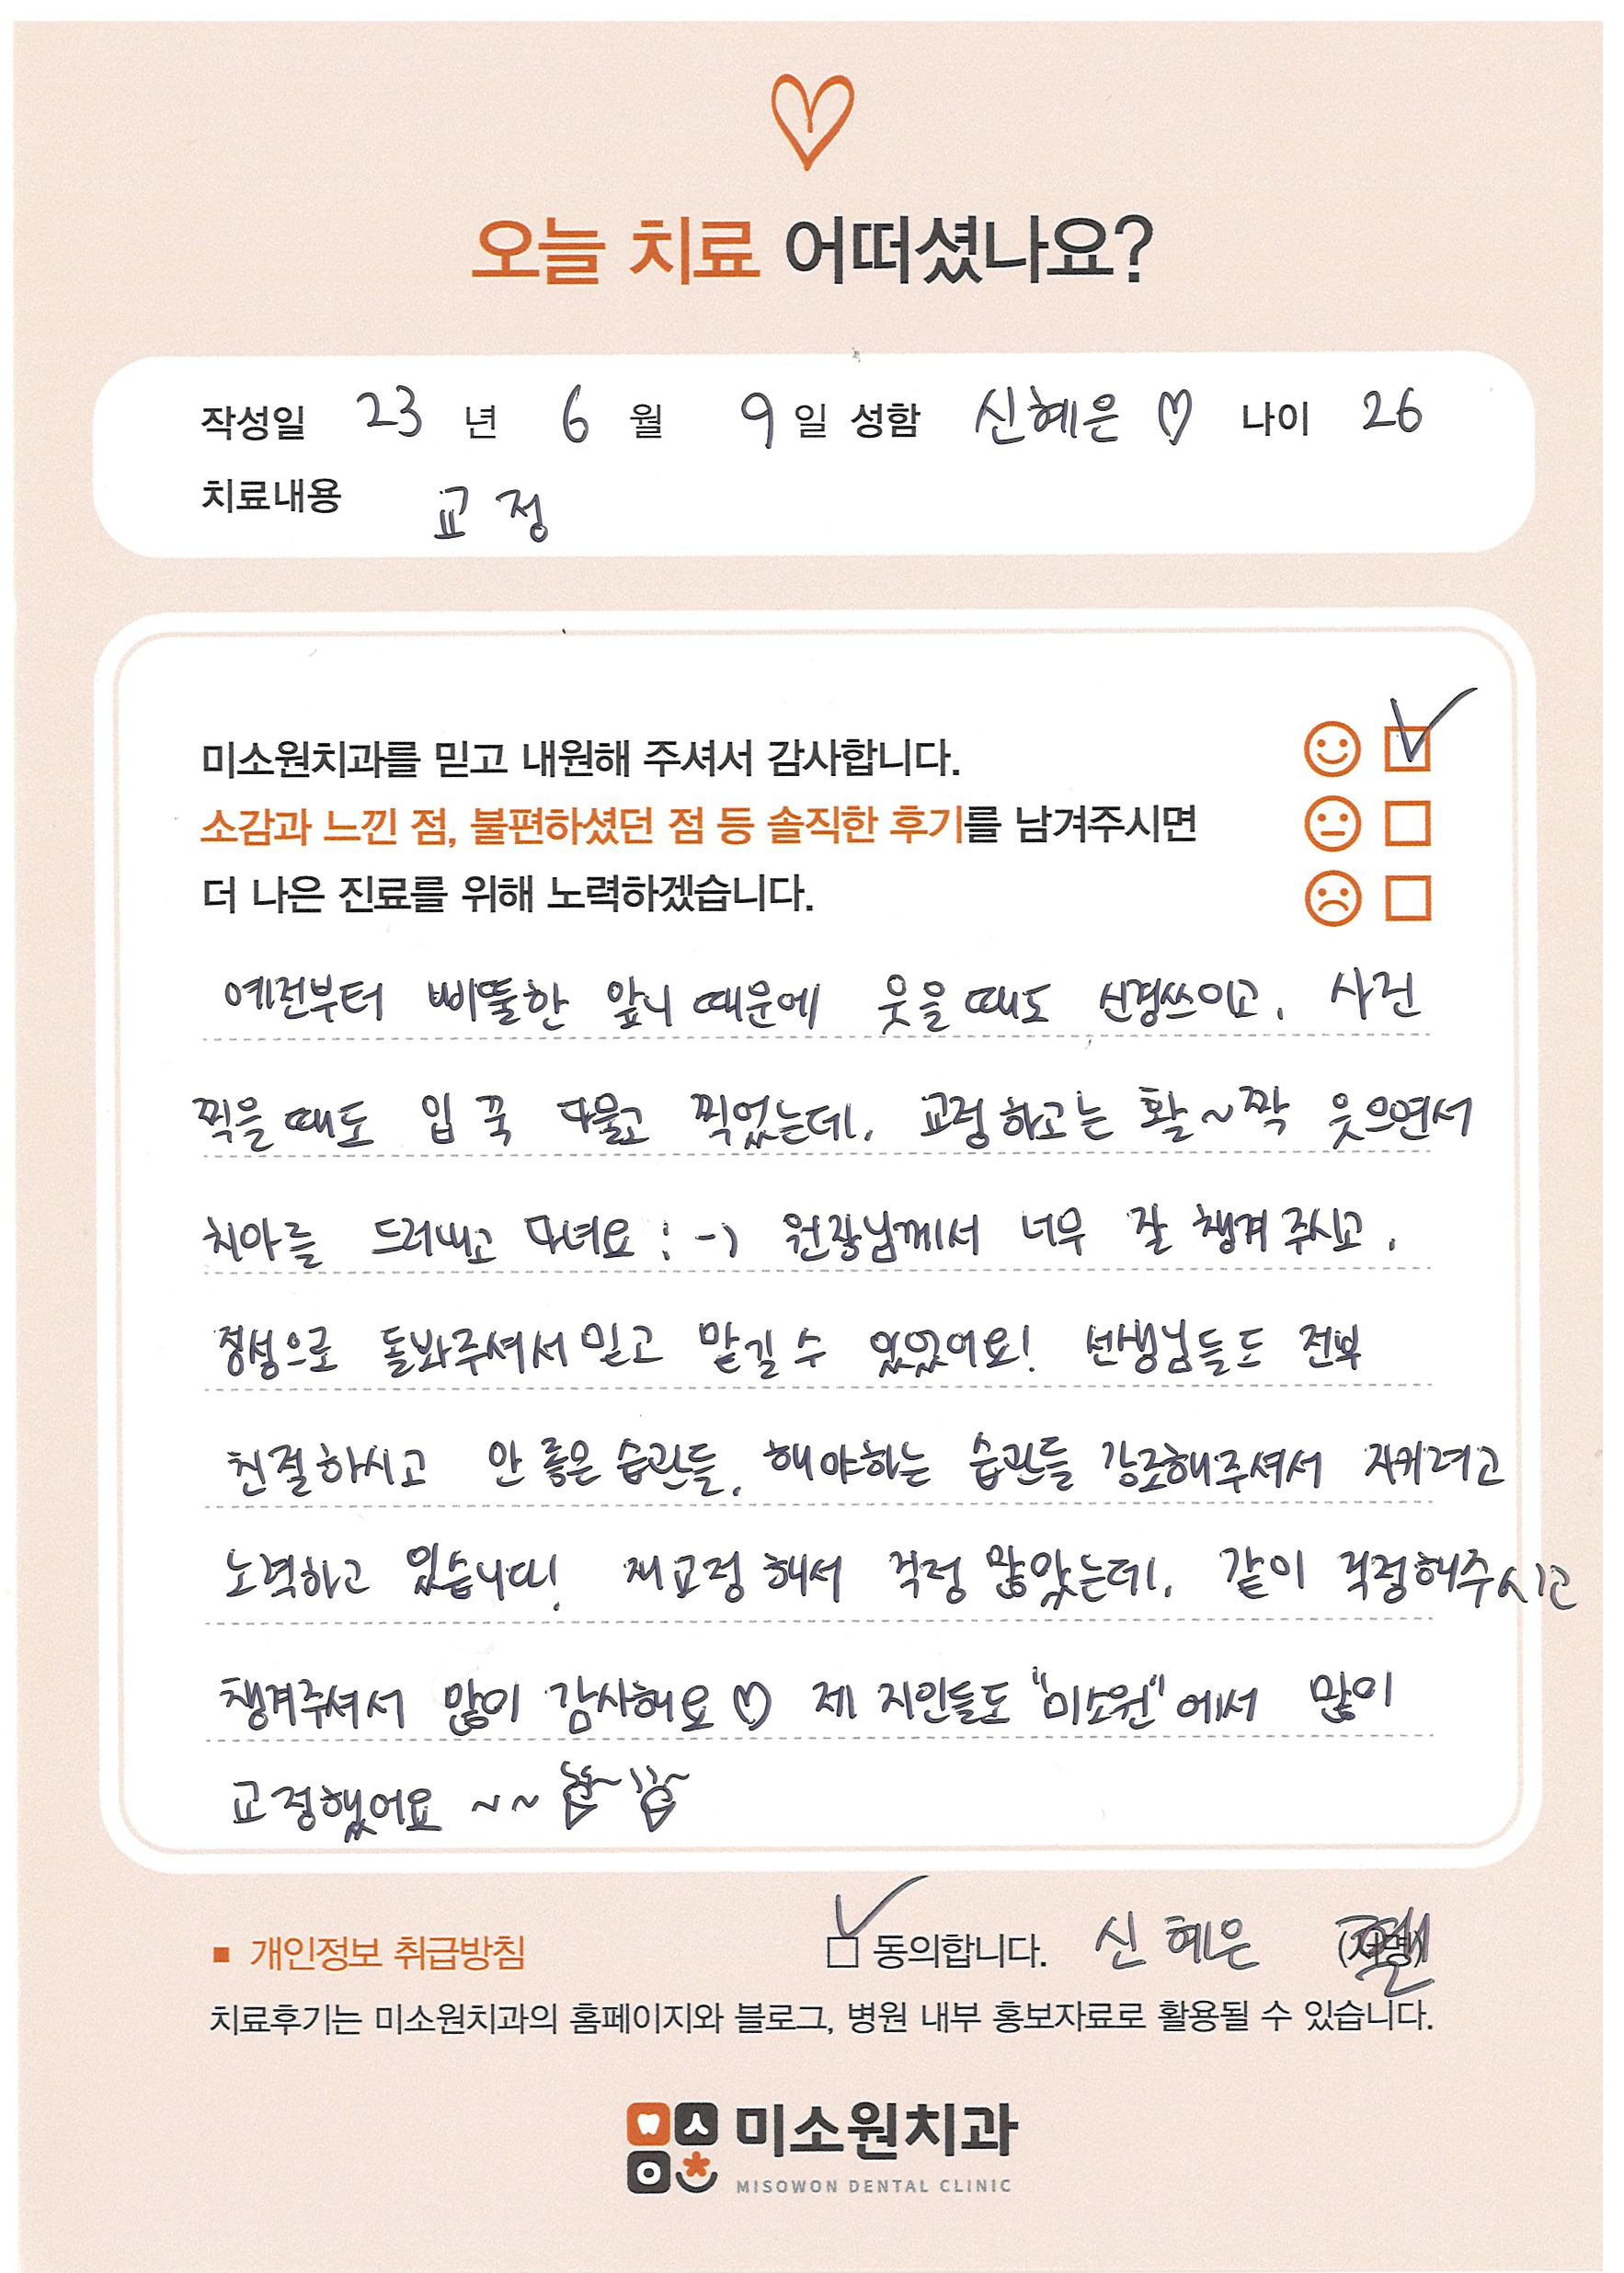 오늘 치료 어떠셨나요?
작성일 23 년 6 월 9 일 성함 신혜은 ♡ 나이 26
치료내용 교정
미소원치과를 믿고 내원해 주셔서 감사합니다.
소감과 느낀 점, 불편하셨던 점 등 솔직한 후기를 남겨주시면
더 나은 진료를 위해 노력하겠습니다.
예전부터 삐뚤한 앞니 때문에 웃을때도 신경쓰이고, 사진
찍을때도 입 꾹 다물고 찍었는데, 교정하고는 활~짝 웃으면서
치아를 드러내고 다녀요 :-) 원장님께서 너무 잘 챙겨주시고,
정성으로 돌봐주셔서 믿고 맡길 수 있었어요! 선생님들도 전부
친절하시고 안 좋은 습관들, 해야하는 습관들 강조해주셔서 지키려고
노력하고 있습니다! 재교정 해서 걱정 많았는데, 같이 걱정해주시고
챙겨주셔서 많이 감사해요♡ 제 지인들도 "미소원"에서 많이
교정했어요 ~~
▪ 개인정보 취급방침 동의합니다. 신혜은 (서명)
치료후기는 미소원치과의 홈페이지와 블로그, 병원 내부 홍보자료로 활용될 수 있습니다.
미소원치과
MISOWON DENTAL CLINIC